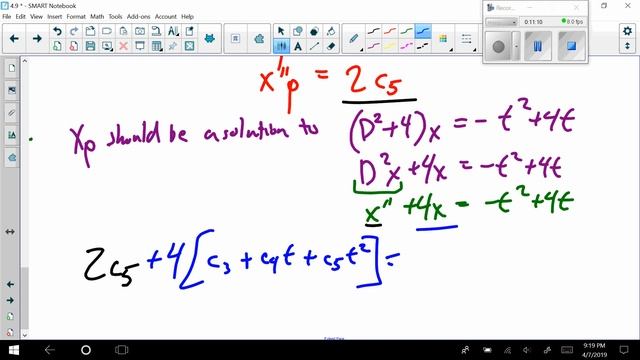 4.9 * - SMART Notebook
File Edit View Insert Format Tools Add-ons Account Help
Recor...
11:10
8.0 fps
x''p = 2c₅
Xp should be a solution to (D²+4)x = -t²+4t
D²x +4x = -t²+4t
x'' +4x = -t²+4t
2c₅ +4[c₃ + c₄t + c₅t²] =
Extend Page
9:19 PM
4/7/2019